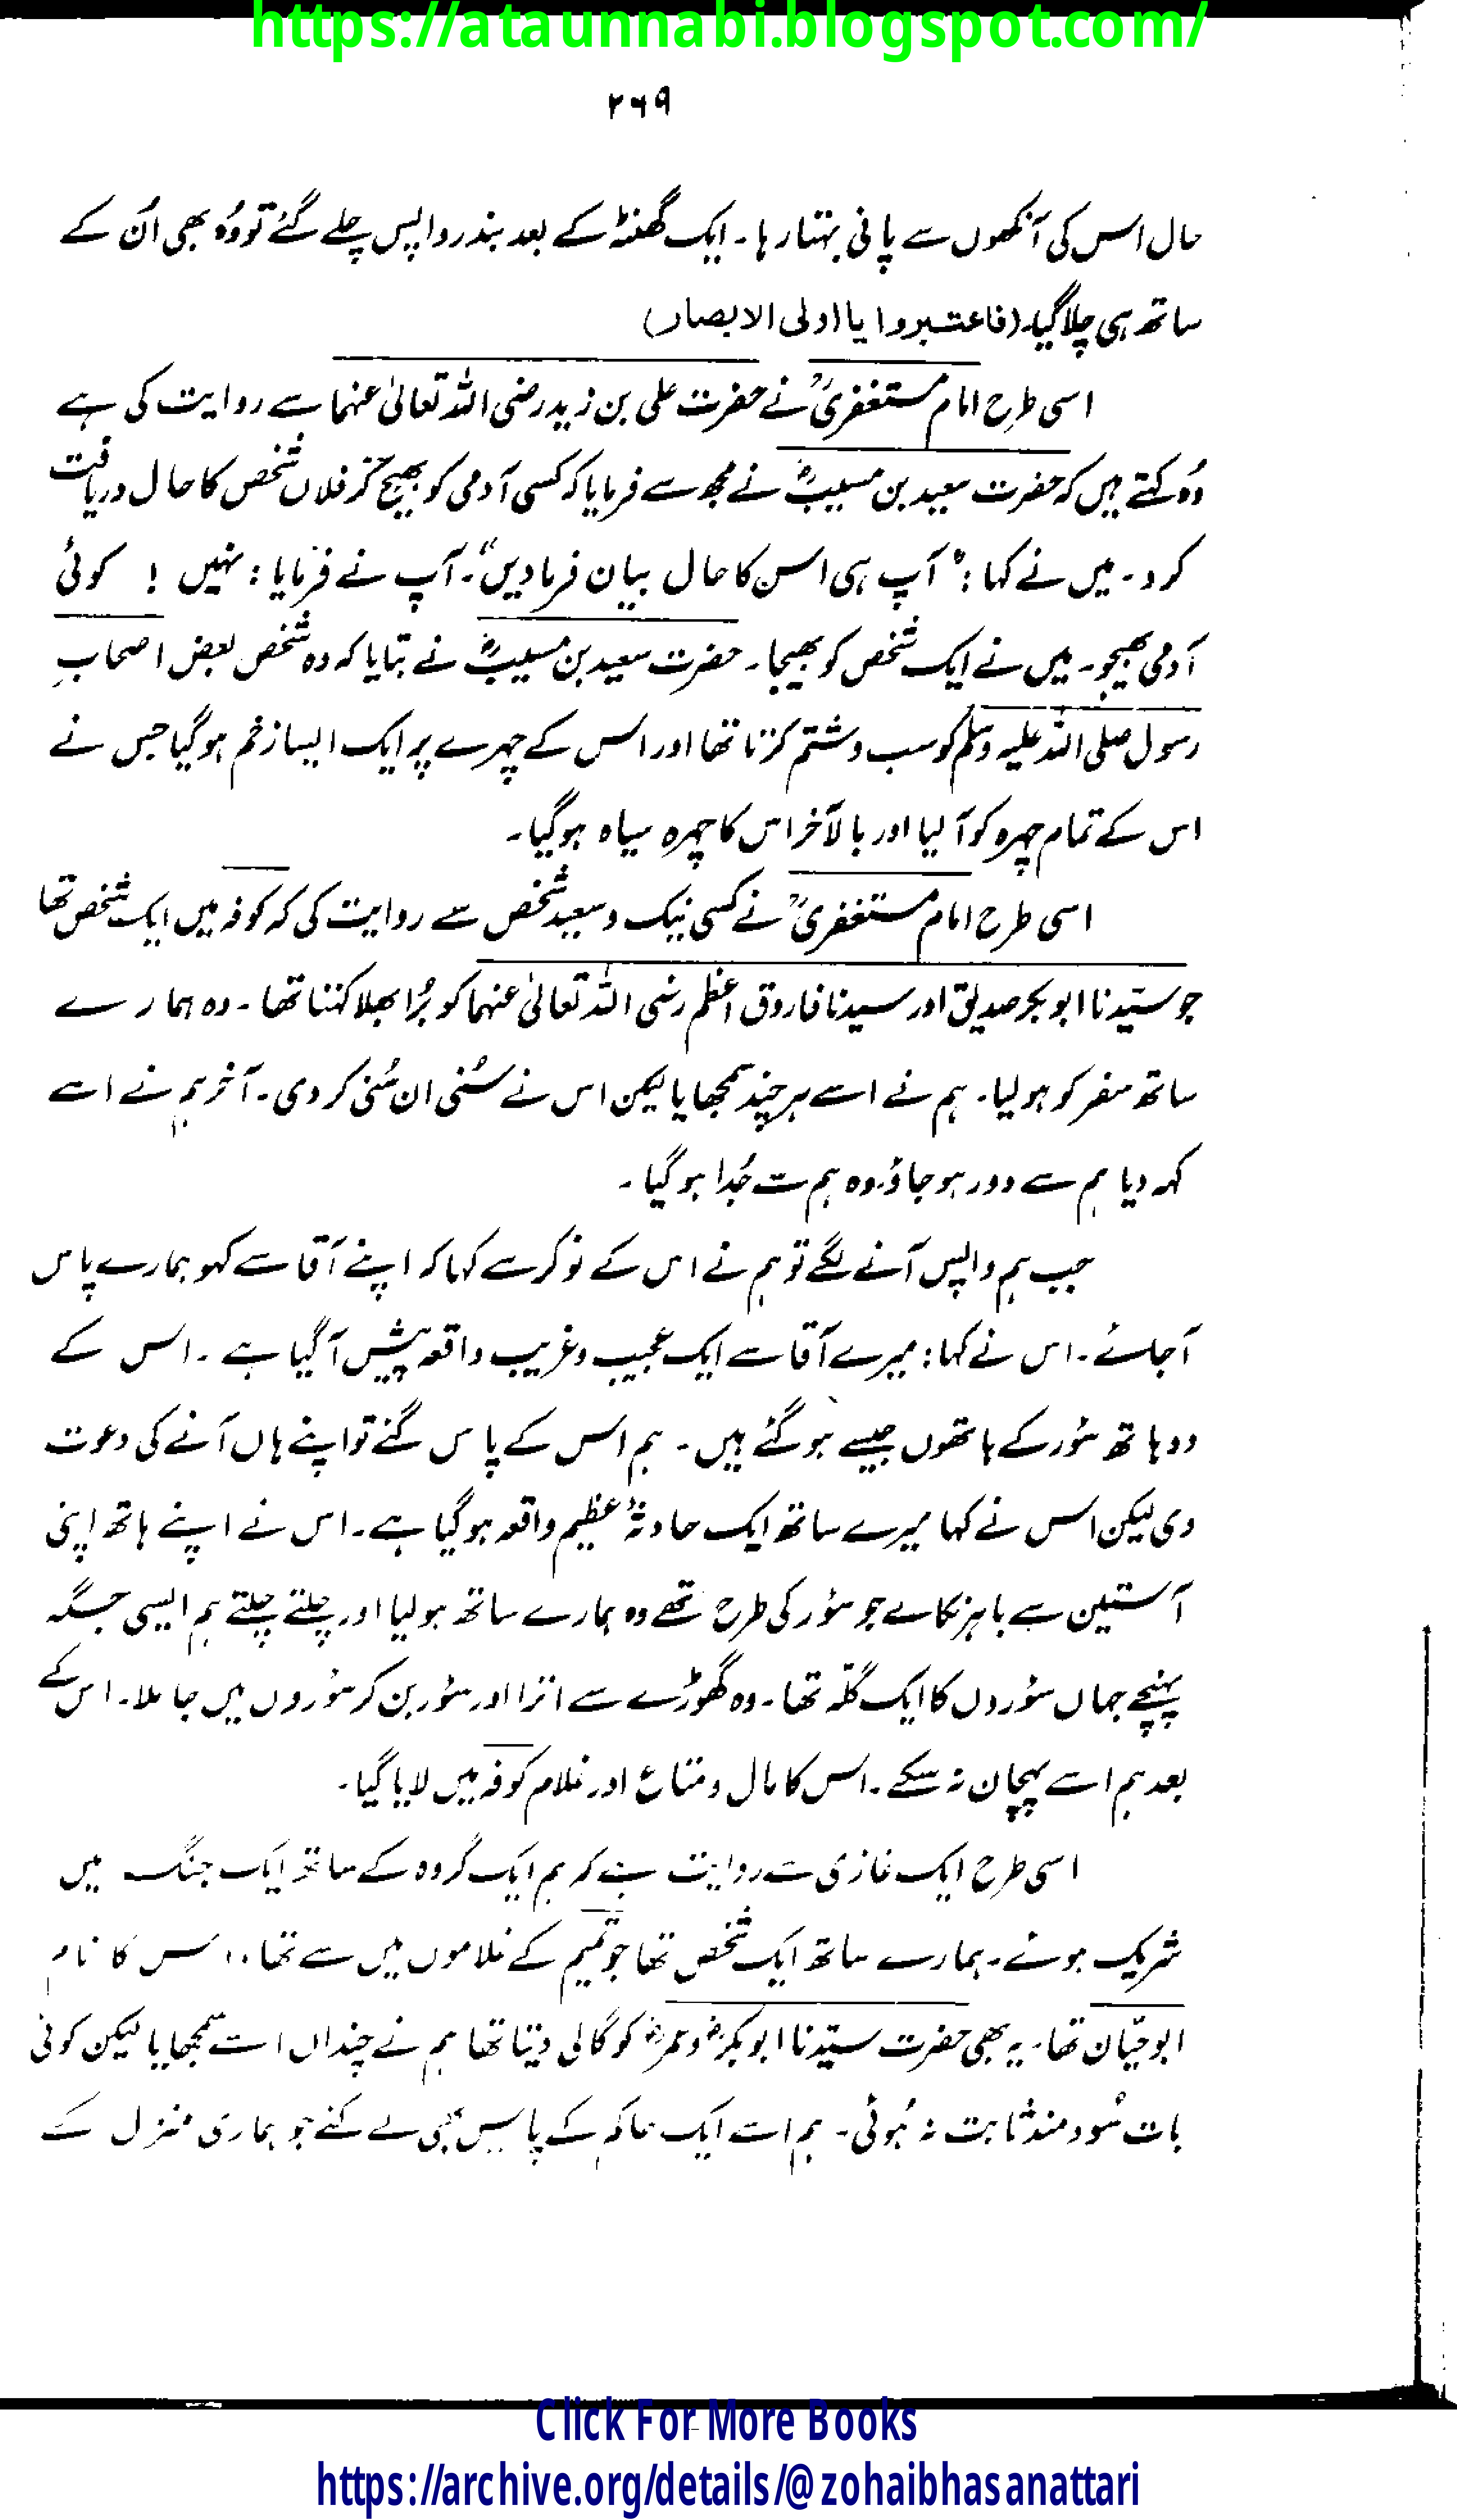 https://ataunnabi.blogspot.com/
۲۶۹
حال اس کی آنکھوں سے پانی بہتا رہا۔ ایک گھنٹہ کے بعد بندر واپس چلے گئے تو وُہ بھی اُن کے
ساتھ ہی چلا گیا۔ (فاعتبروا یا اولی الابصار)
اسی طرح امام مستغفریؒ نے حضرت علی بن زید رضی اللہ تعالیٰ عنہما سے روایت کی ہے
وُہ کہتے ہیں کہ حضرت سعید بن مسیبؓ نے مجھ سے فرمایا کہ کسی آدمی کو بھیج کر فلاں شخص کا حال دریافت
کرو۔ میں نے کہا: "آپ ہی اس کا حال بیان فرما دیں"۔ آپ نے فرمایا: نہیں ! کوئی
آدمی بھیجو۔ میں نے ایک شخص کو بھیجا۔ حضرت سعید بن مسیبؓ نے بتایا کہ وہ شخص بعض اصحابِ
رسول صلی اللہ علیہ وسلم کو سب و شتم کرتا تھا اور اس کے چہرے پر ایک ایسا زخم ہو گیا جس نے
اس کے تمام چہرہ کو آ لیا اور بالآخر اس کا چہرہ سیاہ ہو گیا۔
اسی طرح امام مستغفریؒ نے کسی نیک و سعید شخص سے روایت کی کہ کوفہ میں ایک شخص تھا
جو سیّدنا ابو بکر صدیق اور سیدنا فاروق اعظم رضی اللہ تعالیٰ عنہما کو بُرا بھلا کہتا تھا۔ وہ ہمارے
ساتھ سفر کو ہو لیا۔ ہم نے اسے ہر چند سمجھایا لیکن اس نے سُنی ان سُنی کر دی۔ آخر ہم نے اسے
کہہ دیا ہم سے دور ہو جاؤ، وہ ہم سے جُدا ہو گیا۔
جب ہم واپس آنے لگے تو ہم نے اس کے نوکر سے کہا کہ اپنے آقا سے کہو ہمارے پاس
آ جائے۔ اس نے کہا: میرے آقا سے ایک عجیب و غریب واقعہ پیش آ گیا ہے۔ اس کے
دو ہاتھ سؤر کے ہاتھوں جیسے ہو گئے ہیں۔ ہم اس کے پاس گئے تو اپنے ہاں آنے کی دعوت
دی لیکن اس نے کہا میرے ساتھ ایک حادثۂ عظیم واقعہ ہو گیا ہے۔ اس نے اپنے ہاتھ اپنی
آستین سے باہر نکالے جو سؤر کی طرح تھے وہ ہمارے ساتھ ہو لیا اور چلتے چلتے ہم ایسی جگہ
پہنچے جہاں سؤروں کا ایک گلّہ تھا۔ وہ گھوڑے سے اترا اور سؤر بن کر سؤروں میں جا ملا۔ اس کے
بعد ہم اسے پہچان نہ سکے۔ اس کا مال و متاع اور غلام کوفہ میں لایا گیا۔
اسی طرح ایک غازی سے روایت ہے کہ ہم ایک گروہ کے ساتھ ایک جنگ میں
شریک ہوئے۔ ہمارے ساتھ ایک شخص تھا جو تمیم کے غلاموں میں سے تھا۔ اس کا نام
ابو حیّان تھا۔ یہ بھی حضرت سیّدنا ابو بکرؓ و عمرؓ کو گالی دیتا تھا ہم نے چنداں اسے سمجھایا لیکن کوئی
بات سُود مند ثابت نہ ہُوئی۔ ہم اسے ایک حاکم کے پاس بھی لے گئے جو ہماری منزل کے
Click For More Books
https://archive.org/details/@zohaibhasanattari